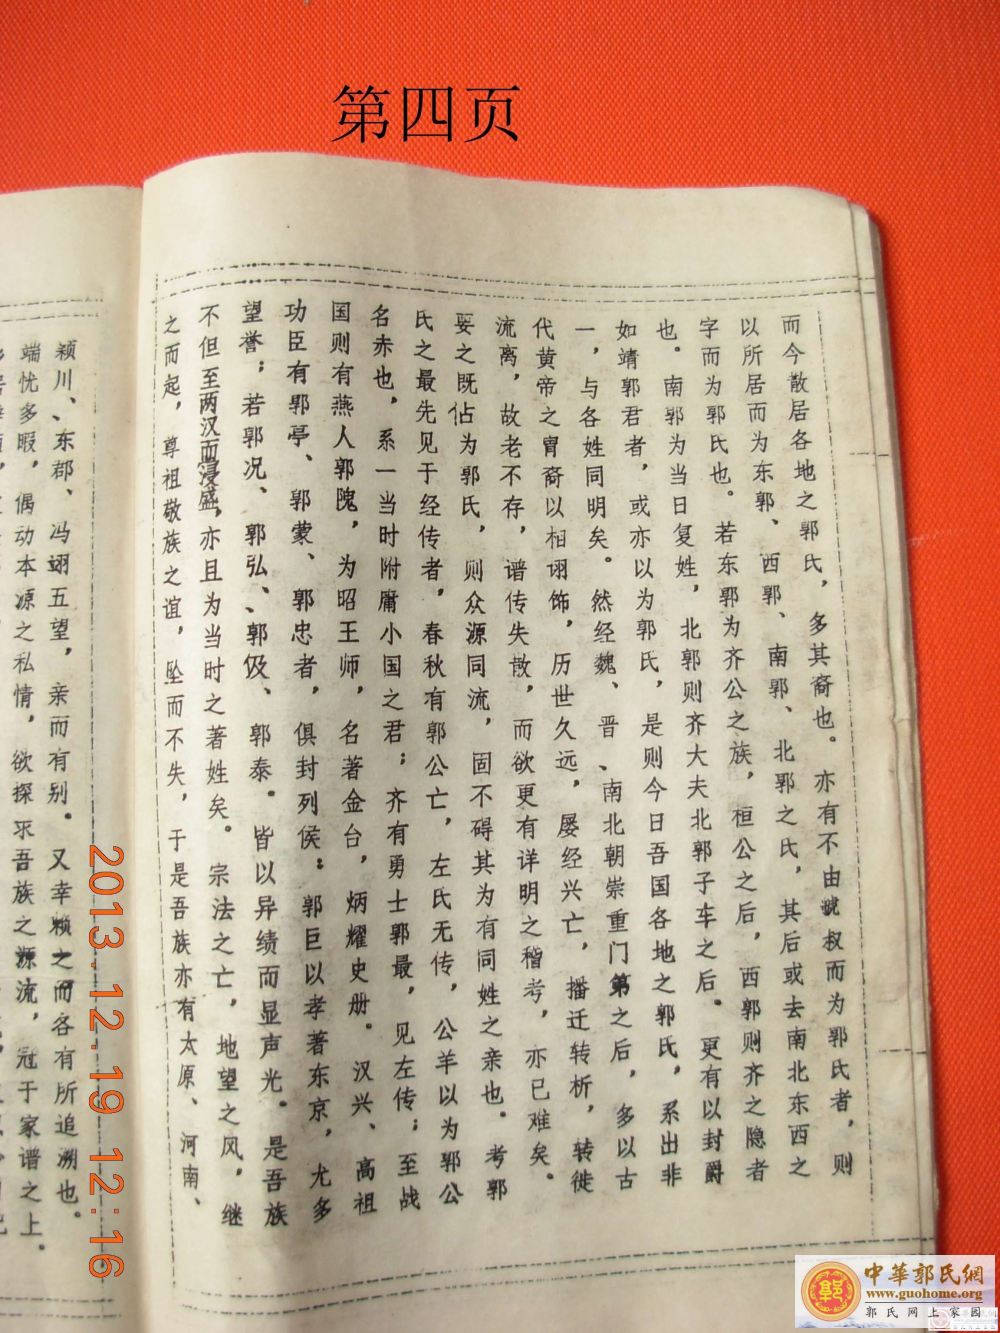 第四页
而今散居各地之郭氏，多其裔也。亦有不由虢叔而为郭氏者，则
以所居而为东郭、西郭、南郭、北郭之氏，其后或去南北东西之
字而为郭氏也。若东郭为齐公之族，桓公之后，西郭则齐之隐者
也。南郭为当日复姓，北郭则齐大夫北郭子车之后。更有以封爵
如靖郭君者，或亦以为郭氏，是则今日吾国各地之郭氏，系出非
一，与各姓同明矣。然经魏、晋、南北朝崇重门第之后，多以古
代黄帝之胄裔以相诩饰，历世久远，屡经兴亡，播迁转析，转徙
流离，故老不存，谱传失散，而欲更有详明之稽考，亦已难矣。
要之既佔为郭氏，则众源同流，固不碍其为有同姓之亲也。考郭
氏之最先见于经传者，春秋有郭公亡，左氏无传，公羊以为郭公
名赤也，系一当时附庸小国之君；齐有勇士郭最，见左传；至战
国则有燕人郭隗，为昭王师，名著金台，炳耀史册。汉兴、高祖
功臣有郭亭、郭蒙、郭忠者，俱封列侯：郭巨以孝著东京，尤多
望誉；若郭况、郭弘、郭伋、郭泰。皆以异绩而显声光。是吾族
不但至两汉而寖盛，亦且为当时之著姓矣。宗法之亡，地望之风，继
之而起，尊祖敬族之谊，坠而不失，于是吾族亦有太原、河南、
颍川、东郡、冯翊五望，亲而有别。又幸赖之而各有所追溯也。
端忧多暇，偶动本源之私情，欲探求吾族之源流，冠于家谱之上。
2013.12.19 12:16
郭
中華郭氏網
www.guohome.org
郭氏网上家园